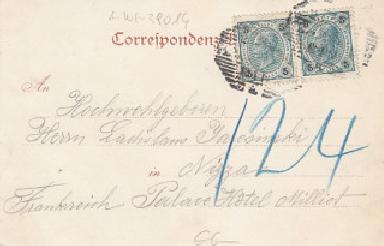 A-WE-39014
Correspondenz
An
Hochwohlgeboren
Herrn Ladislaus Jarosinski
in Nizza
Frankreich Palace Hôtel Milliet
124